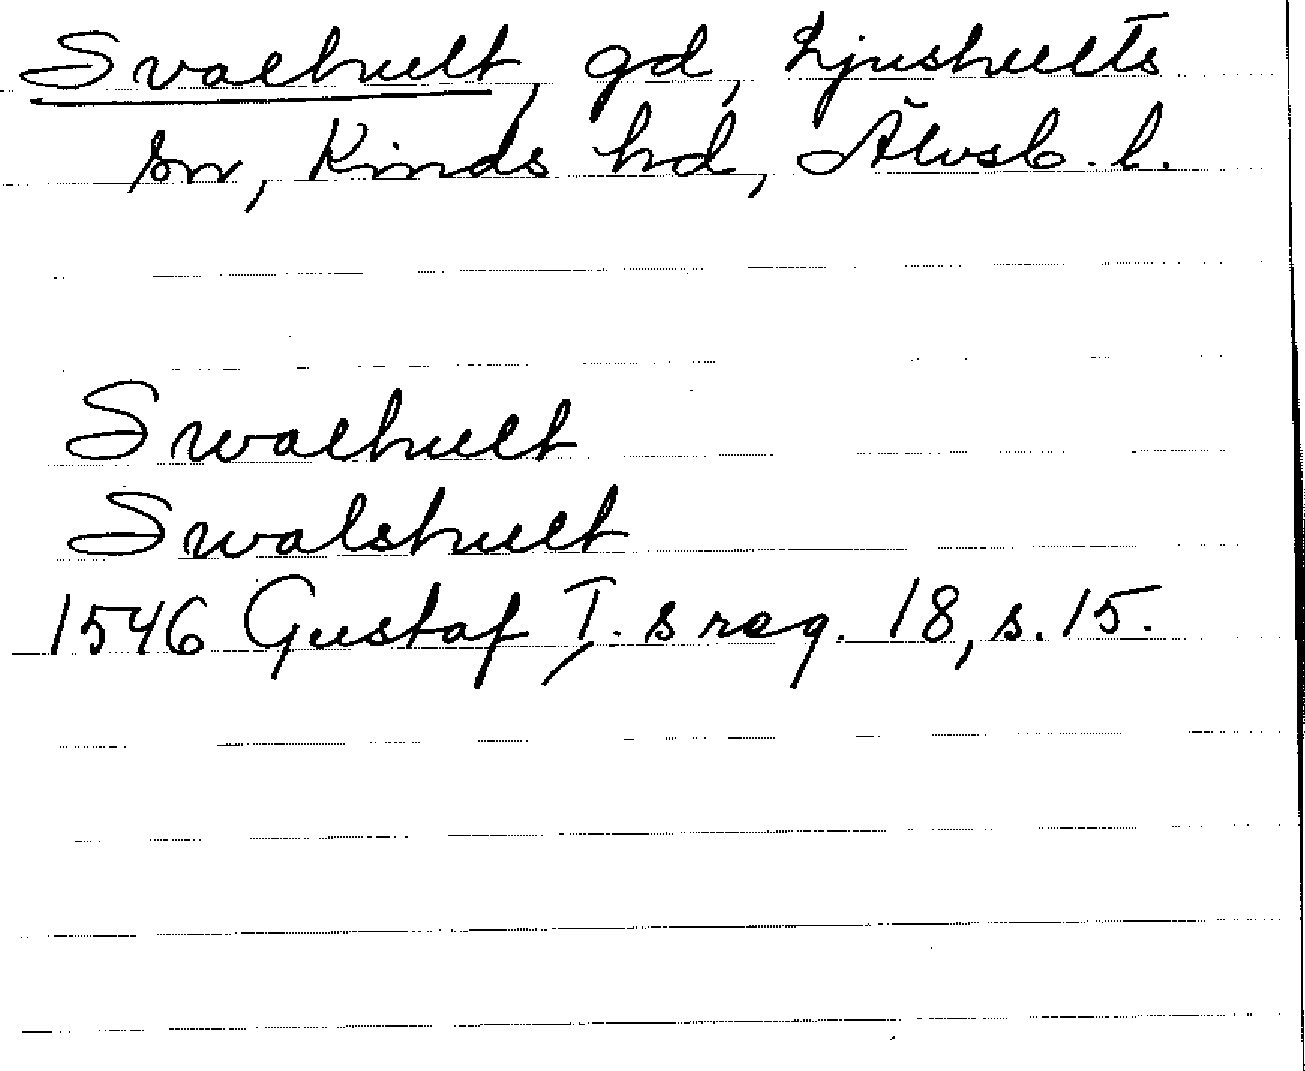 Svalhult, gd, Ljushults
sn, Kinds hd, Älvsb. l.
Swalhult
Swalshult
1546 Gustaf I. s reg. 18, s. 15.